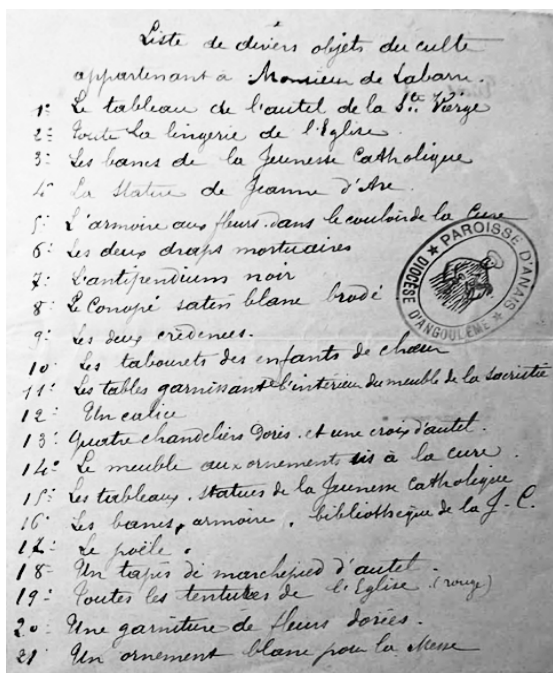 Liste de divers objets du culte
appartenant à Monsieur de Labarre.
1º Le tableau de l'autel de la Ste Vierge
2º Toute la lingerie de l'Eglise.
3º Les bancs de la Jeunesse Catholique
4º La statue de Jeanne d'Arc.
5º L'armoire aux fleurs dans le couloir de la Cure
6º Les deux draps mortuaires
7º L'antipendium noir
8º Le Conopé satin blanc brodé
9º Les deux crédences.
10º Les tabourets des enfants de chœur
11º Les tables garnissant l'intérieur du meuble de la Sacristie
12º Un calice
13º Quatre chandeliers dorés et une croix d'autel.
14º Le meuble aux ornements à la cure.
15º Les tableaux, statues de la Jeunesse Catholique
16º Les bancs, armoire, bibliothèque de la J-C.
17º Le poële.
18º Un tapis de marchepied d'autel.
19º Toutes les tentures de l'Eglise (rouge)
20º Une garniture de fleurs dorées.
21º Un ornement blanc pour la Messe
PAROISSE D'ANAIS
DIOCÈSE D'ANGOULÊME